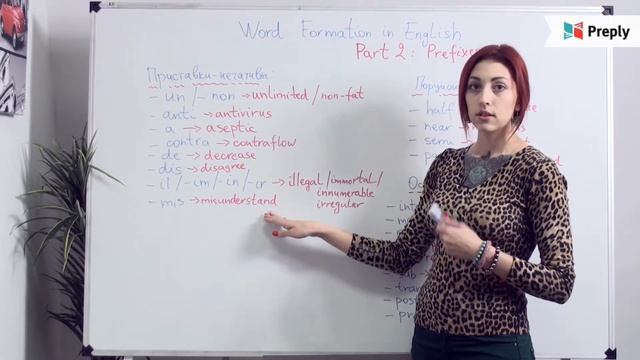 Preply
Word Formation in English
Part 2: Prefixes
Приставки-негативы:
- un / - non → unlimited / non-fat
- anti → antivirus
- a → aseptic
- contra → contraflow
- de → decrease
- dis → disagree
- il / - im / - in / - ir → illegal / immortal /
innumerable
irregular
- mis → misunderstand
- half
- near
- semi
- sub
- tran
- post